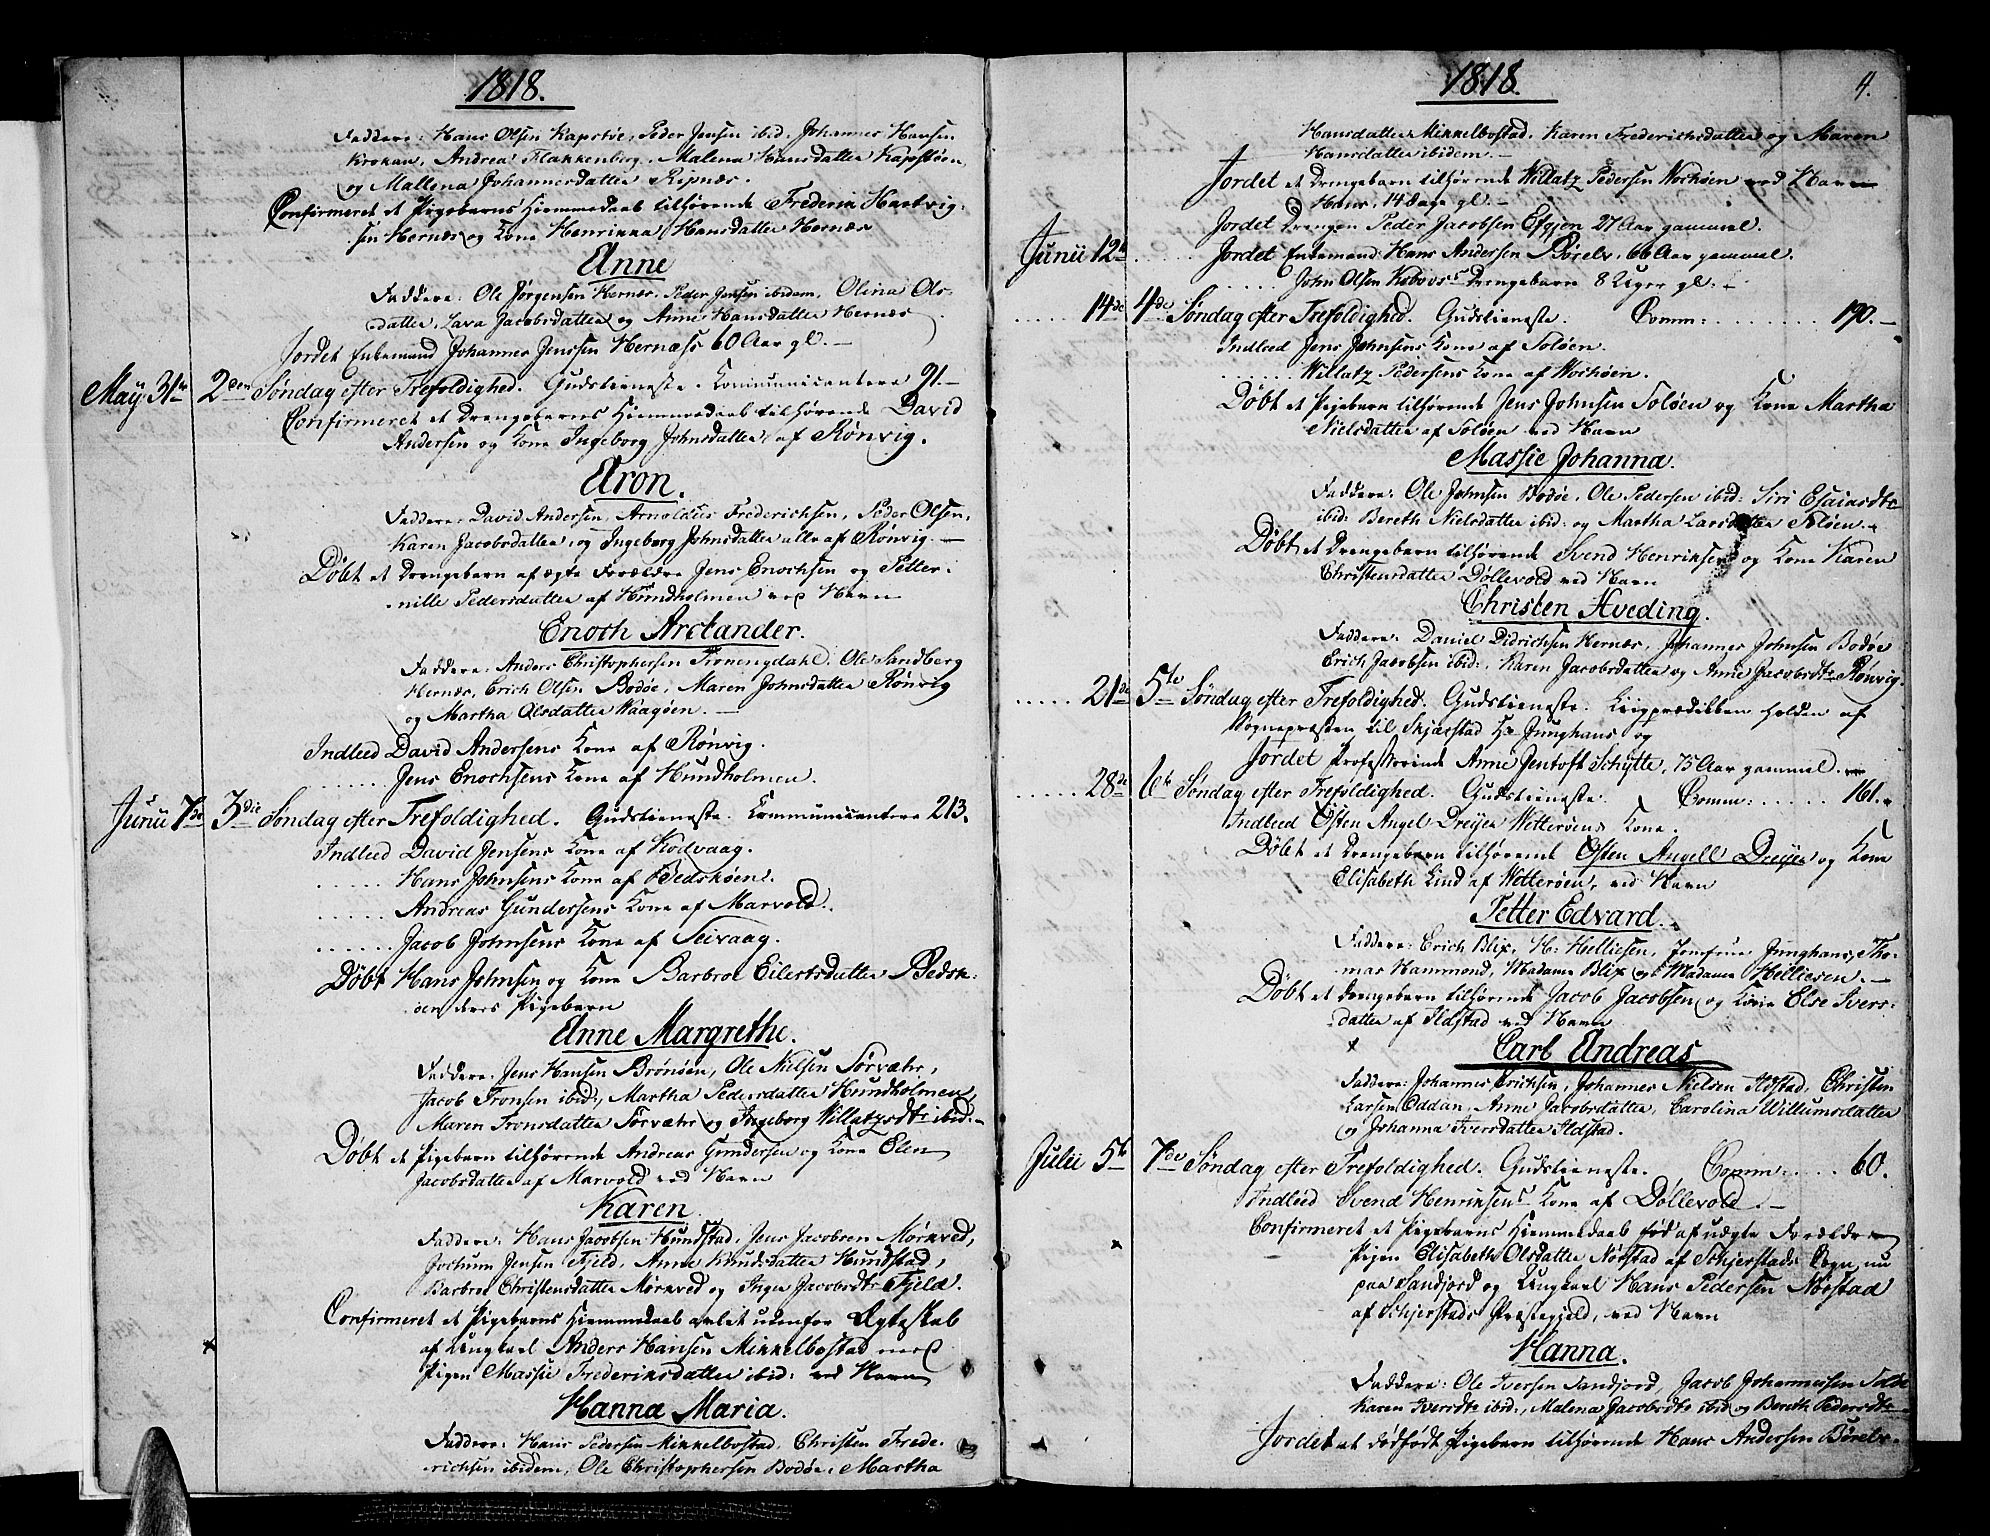 1818.
Faddere: Hans Olsen Kapstøe, Peder Jensen ibid. Johannes Hansen
Krokan, Andrea Flakkenberg, Malena Hansdatter Kapstøen,
og Mallena Johannesdatter Ripnæs.
Confirmeret et Pigebarns Hiemmedaab tilhørende Frederik Hartvig-
sen Hernæs og Kone Henrikka Hansdatter Hernæs
Anne
Faddere: Ole Jørgensen Hernæs, Peder Jensen ibidem, Olina Ols-
datter, Lava Jacobsdatter og Anne Hansdatter Hernæs
Jordet Enkemand Johannes Jenssen Hernæss 60 Aar gl.
May 31te 2den Søndag efter Trefoldighed. Gudstieneste. Communicantere 91.
Confirmeret et Drengebarnes Hiemmedaab tilhørende David
Andersen og Kone Ingeborg Johnsdatter af Rønvig.
Aron.
Faddere: David Andersen, Arnoldus Frederichsen, Peder Olsen,
Karen Jacobsdatter, og Ingeborg Johnsdatter alle af Rønvig.
Døbt et Drengebarn af ægte Forældre Jens Enochsen og Petter-
nille Pedersdatter af Hundholmen ved Navn
Enoch Arctander.
Faddere: Anders Christophersen Ole Sandberg
Hernæs, Erich Olsen Bodøe, Maren Johnsdatter Rønvig
og Martha Olsdatter Vaagøen.
Indleed David Andersens Kone af Rønvig.
...... Jens Enochsens Kone af Hundholmen.
Junii 7de 3die Søndag efter Trefoldighed. Gudstieneste. Communicantere 213.
Indleed David Jensens Kone af Kodvaag.
...... Hans Johnsens Kone af Bedskøen.
...... Andreas Gundersens Kone af Marvold.
...... Jacob Johnsens Kone af Seivaag.
Døbt Hans Johnsen og Kone Barbroe Eilertsdatter Bedsk-
øen deres Pigebarn
Anne Margrethe.
Faddere: Jens Hansen Brønøen, Ole Nielsen Sørvær,
Jacob Tronsen ibid:, Martha Pedersdatter Hundholmen,
Maren Tronsdatter Sørvær og Ingeborg Villatzsdtr ibid:
Døbt et Pigebarn tilhørende Andreas Gundersen og Kone Elen
Jacobsdatter af Marvold ved Navn
Karen.
Faddere: Hans Jacobsen Hundstad, Jens Jacobsen Mørkved,
Jochum Jensen Fjeld, Anne Knudsdatter Hundstad,
Barbroe Christensdatter Mørkved og Inger Jacobsdtr Fjeld.
Confirmeret et Pigebarns Hiemmedaab avlet udenfor Ægteskab
af Ungkarl Anders Hansen Mikkelbostad med
Pigen Massie Frederiksdatter ibid: ved Navn
Hanna Maria.
Faddere: Hans Pedersen Mikkelbostad, Christen Frede-
richsen ibidem, Ole Christophersen Bodøe, Martha
1818. 4.
Hansdatter Mikkelbostad, Karen Frederichsdatter og Maren
Hansdatter ibidem.
Jordet et Drengebarn tilhørende Willatz Pedersen Wochøen ved Navn
Hans, 14 Dage gl.
Jordet Drengen Peder Jacobsen Efgjon 27 Aar gammel.
Junii 12te Jordet Enkemand Hans Andersen Børelv, 66 Aar gammel.
...... John Olsen Kobvogs Drengebarn 8 Uger gl:
14de 4de Søndag efter Trefoldighed. Gudstieneste. Comm: 190.
Indleed Jens Johnsens Kone af Soløen.
...... Willatz Pedersens Kone af Wochøen.
Døbt et Pigebarn tilhørende Jens Johnsen Soløen og Kone Martha
Nielsdatter af Soløen ved Navn
Massie Johanna.
Faddere: Ole Johnsen Bodøe, Ole Pedersen ibid: Siri Esaiasdtr
ibid: Bereth Nielsdatter ibid: og Martha Larsdatter Soløen.
Døbt et Drengebarn tilhørende Svend Henriksen og Kone Karen
Christensdatter Døllevold ved Navn
Christen Hveding.
Faddere: Daniel Didrichsen Hernæs, Johannes Johnsen Bodøe
Erich Jacobsen ibid:, Karen Jacobsdatter og Anne Jacobsdtr Rønvig.
21de 5te Søndag efter Trefoldighed. Gudstieneste. Liigprædikken holden af
Sognepræsten til Skjærstad Hr. Junghans og
Jordet Anne Jentoft Schytte, 75 Aar gammel.
28de 6te Søndag efter Trefoldighed. Gudstieneste. Comm: 161.
Indleed Østen Angel Dreyer Wetterøens Kone.
Døbt et Drengebarn tilhørende Østen Angell Dreyer og Kone
Elisabeth Lind af Wetterøen, ved Navn
Petter Edvard.
Faddere: Erich Blix, H. Helliesen, Jomfrue Junghans, Tho-
mas Hammond, Madame Blix og Madame Helliesen.
Døbt et Drengebarn tilhørende Jacob Jacobsen og Kone Else Ivers-
datter af Ildstad ved Navn
Carl Andreas
Faddere: Johannes Erichsen, Johannes Nielsen Ildstad, Christen
Larsen Oddan, Anne Jacobsdatter, Carolina Willumsdatter
og Johanna Iversdatter Ildstad.
Julii 5te 7de Søndag efter Trefoldighed. Gudstieneste. Comm: 60.
Indleed Svend Henriksens Kone af Døllevold.
Confirmeret et Pigebarns Hiemmedaab fød af uægte Forældre
Pigen Elisabeth Olsdatter Nøstad af Schjerstads Sogn, nu
paa Sandjord og Ungkarl Hans Pedersen Nøstad
af Schjerstads Præstegjeld, ved Navn
Hanna.
Faddere: Ole Iversen Sandjord, Jacob Johannesen
Karen Iversdtr ibid:, Malena Jacobsdtr ibid og Bereth Pedersdtr
Jordet et dødfødt Pigebarn tilhørende Hans Andersen Børelv.